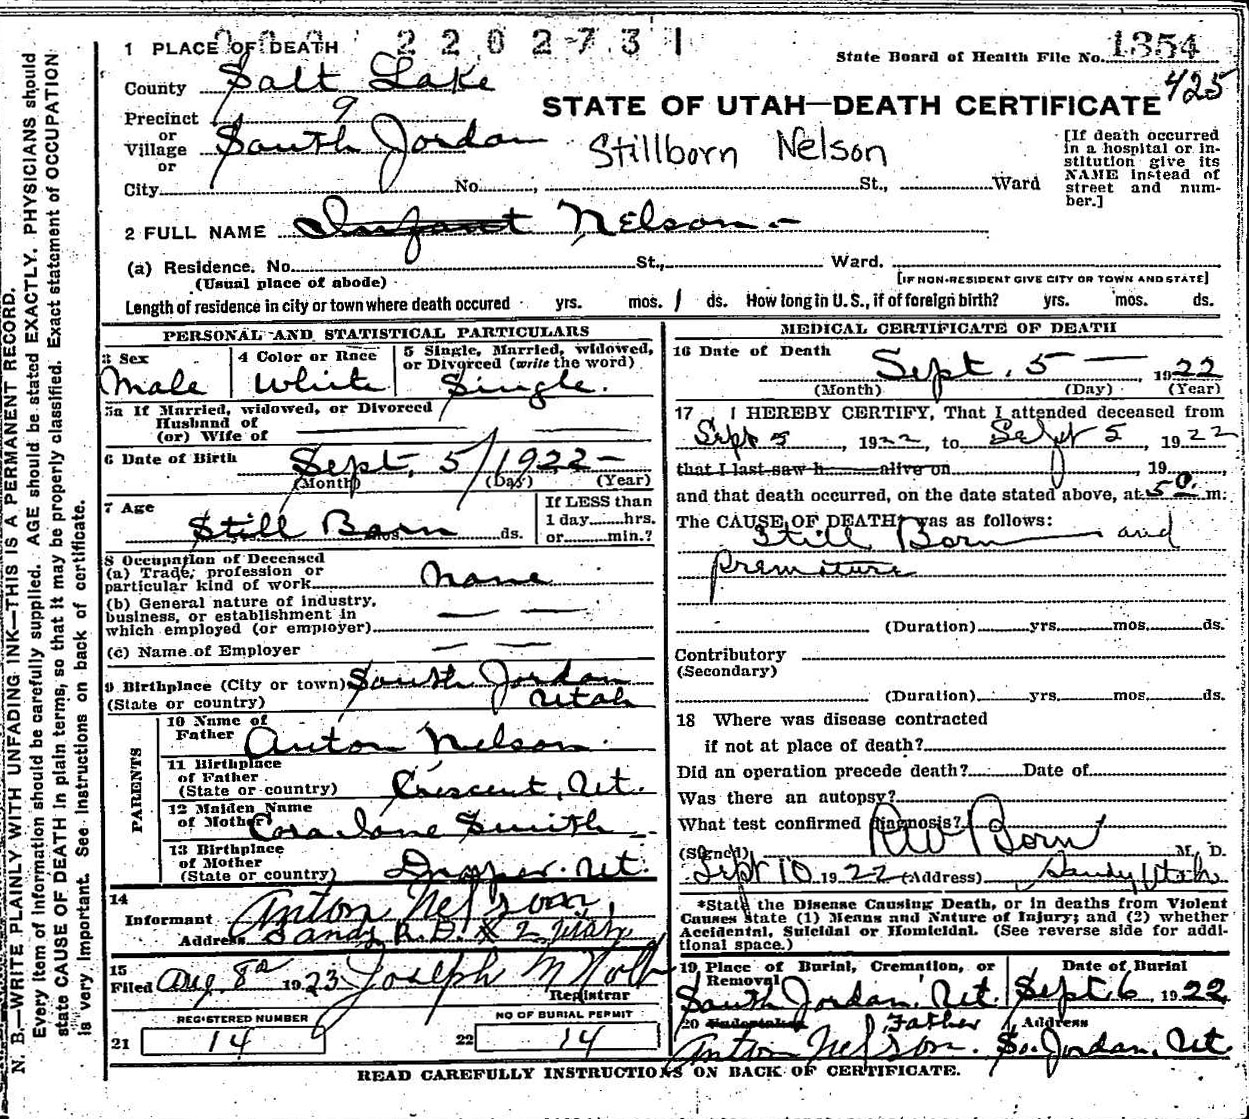 220273 1
1 PLACE OF DEATH
State Board of Health File No. 1354
County Salt Lake
425
STATE OF UTAH—DEATH CERTIFICATE
Precinct 9
or
Village South Jordan
or
Stillborn Nelson
[If death occurred in a hospital or in-
stitution give its
NAME instead of
street and num-
ber.]
City No. , St., Ward
2 FULL NAME Infant Nelson.-
(a) Residence. No. St., Ward.
(Usual place of abode) [IF NON-RESIDENT GIVE CITY OR TOWN AND STATE]
Length of residence in city or town where death occured yrs. mos. 1 ds. How long in U. S., if of foreign birth? yrs. mos. ds.
PERSONAL AND STATISTICAL PARTICULARS
3 Sex Male
4 Color or Race White
5 Single, Married, widowed,
or Divorced (write the word)
Single.
5a If Married, widowed, or Divorced
Husband of
(or) Wife of
6 Date of Birth Sept. 5/1922-
(Month) (Day) (Year)
7 Age Still Born mos. ds.
If LESS than
1 day......hrs.
or......min.?
8 Occupation of Deceased
(a) Trade, profession or
particular kind of work None
(b) General nature of industry,
business, or establishment in
which employed (or employer)
(c) Name of Employer
9 Birthplace (City or town) South Jordan
(State or country) Utah
PARENTS
10 Name of
Father Anton Nelson.
11 Birthplace
of Father
(State or country) Crescent, Ut.
12 Maiden Name
of Mother Cora Jane Smith
13 Birthplace
of Mother
(State or country) Draper. Ut.
14
Informant Anton Nelson,
Address Sandy R.D. # 2, Utah
15
Filed Aug. 8th 1923 Joseph M Holt
Registrar
REGISTERED NUMBER
21 14
NO OF BURIAL PERMIT
22 14
MEDICAL CERTIFICATE OF DEATH
16 Date of Death Sept. 5 — 1922
(Month) (Day) (Year)
17 I HEREBY CERTIFY, That I attended deceased from
Sept 5, 1922, to Sept 5, 1922
that I last saw h alive on , 19 ,
and that death occurred, on the date stated above, at 5 m:
The CAUSE OF DEATH was as follows:
Still Born and
premature
(Duration) yrs. mos. ds.
Contributory
(Secondary)
(Duration) yrs. mos. ds.
18 Where was disease contracted
if not at place of death?
Did an operation precede death? Date of
Was there an autopsy?
What test confirmed diagnosis?
(Signed) RW Born M. D.
Sept 10 1922 (Address) Sandy Utah
*State the Disease Causing Death, or in deaths from Violent
Causes state (1) Means and Nature of Injury; and (2) whether
Accidental, Suicidal or Homicidal. (See reverse side for addi-
tional space.)
19 Place of Burial, Cremation, or
Removal
South Jordan, Ut.
Date of Burial
Sept. 6, 1922
20 Undertaker Father
Anton Nelson.
Address
So. Jordan, Ut.
READ CAREFULLY INSTRUCTIONS ON BACK OF CERTIFICATE.
N. B.—WRITE PLAINLY WITH UNFADING INK—THIS IS A PERMANENT RECORD.
Every item of information should be carefully supplied. AGE should be stated EXACTLY. PHYSICIANS should
state CAUSE OF DEATH in plain terms, so that it may be properly classified. Exact statement of OCCUPATION
is very important. See instructions on back of certificate.